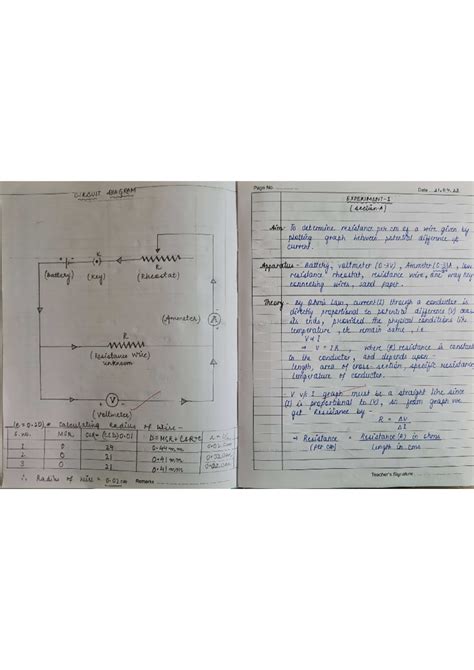 CIRCUIT DIAGRAM
(Battery)
(Key)
R
(Rheostat)
(Ammeter)
A
R
(Resistance Wire)
unknown
V
(Voltmeter)
Calculating Radius of Wire -
S.no. MSR
1 0 24 0.44mm 0.02cm
2. 0 21 0.41mm
3 0 21 0.41mm
∴ Radius of Wire = 0.02cm
Remarks
Page No.
Date
EXPERIMENT-1
(Section-A)
Aim- To determine resistance per cm of a wire given by
plotting graph between potential difference vs
current.
Apparatus - Battery, voltmeter (0-3V), Ammeter, low
resistance rheostat, resistance wire, one way key
connecting wires, sand paper.
Theory - By Ohm's Law, current(I) through a conductor is
directly proportional to potential difference (V) across
its ends, provided the physical conditions like
temperature, etc remain same, i.e
V ∝ I
⇒ V = IR, where (R) resistance is constant
to the conductor, and depends upon -
length, area of cross-section, specific resistance
temperature of conductor.
V v/s I graph must be a straight line since
(I) is proportional to (V), so from graph we
get Resistance by -
R = ΔV
ΔI
⇒ Resistance = Resistance (R) in ohms
(per cm) length in cm
Teacher's Signature